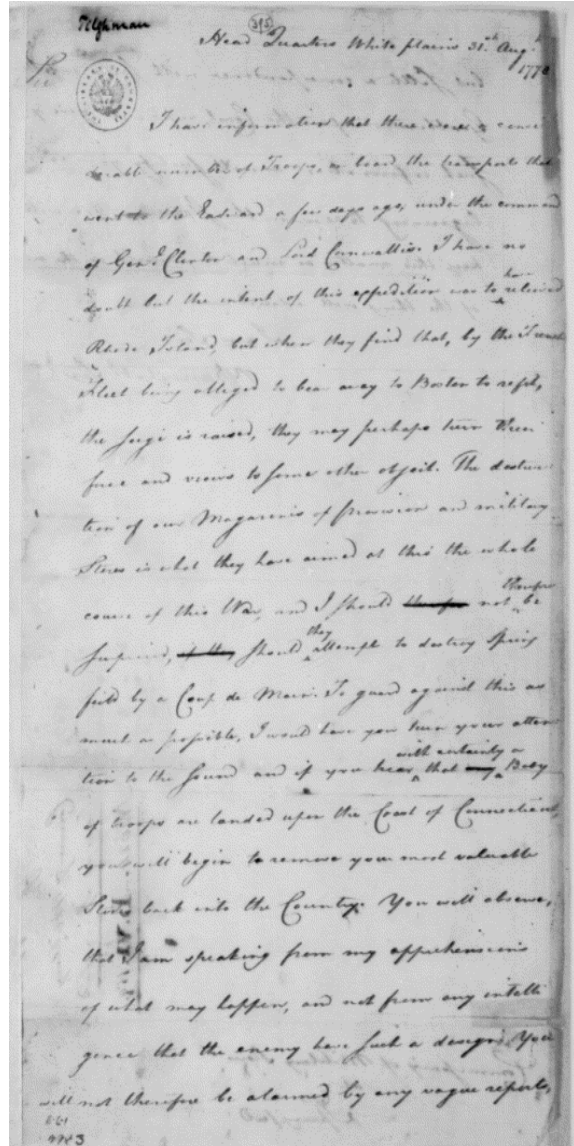 Tilghman
Head Quarters White plains 31st Augt
1778
Sir
I have information that there were a consid
erable number of Troops, on board the transports that
went to the Eastward a few days ago, under the command
of Genl Clinton and Lord Cornwallis. I have no
doubt but the intent of this expedition was to have relieved
Rhode Island, but when they find that, by the French
Fleet being obliged to bear away to Boston to refit,
the seige is raised, they may perhaps turn their
force and views to some other object. The destruc
tion of our Magazines of provision and military
Stores is what they have aimed at thro the whole
course of this War, and I should therefore not therefore be
surprised, if they should they attempt to destroy Spring
field by a Coup de Main. To guard against this as
much as possible, I would have you turn your atten
tion to the Sound and if you hear with certainty that any a Body
of troops are landed upon the Coast of Connecticut,
you will begin to remove your most valuable
Stores back into the Country. You will observe,
that I am speaking from my apprehensions
of what may happen, and not from any intelli
gence that the enemy have such a design. You
will not therefore be alarmed by any vague reports,